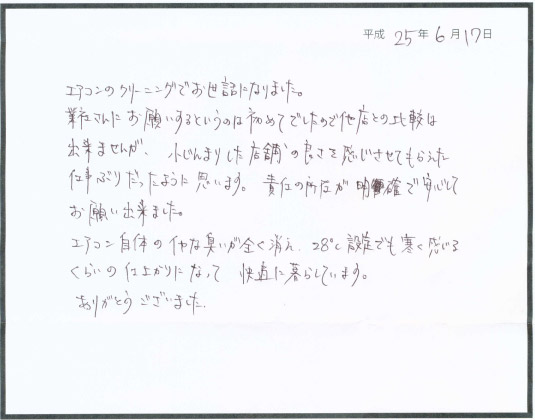 平成 25年 6月 17日
エアコンのクリーニングでお世話になりました。
業社さんにお願いするというのは初めてでしたので他店との比較は
出来ませんが、 小じんまりした店舗の良さを感じさせてもらえた
仕事ぶりだったように思います。 責任の所在が明確で安心して
お願い出来ました。
エアコン自体のイヤな臭いが全く消え、28℃設定でも寒く感じる
くらいの仕上がりになって 快適に暮らしています。
ありがとうございました。